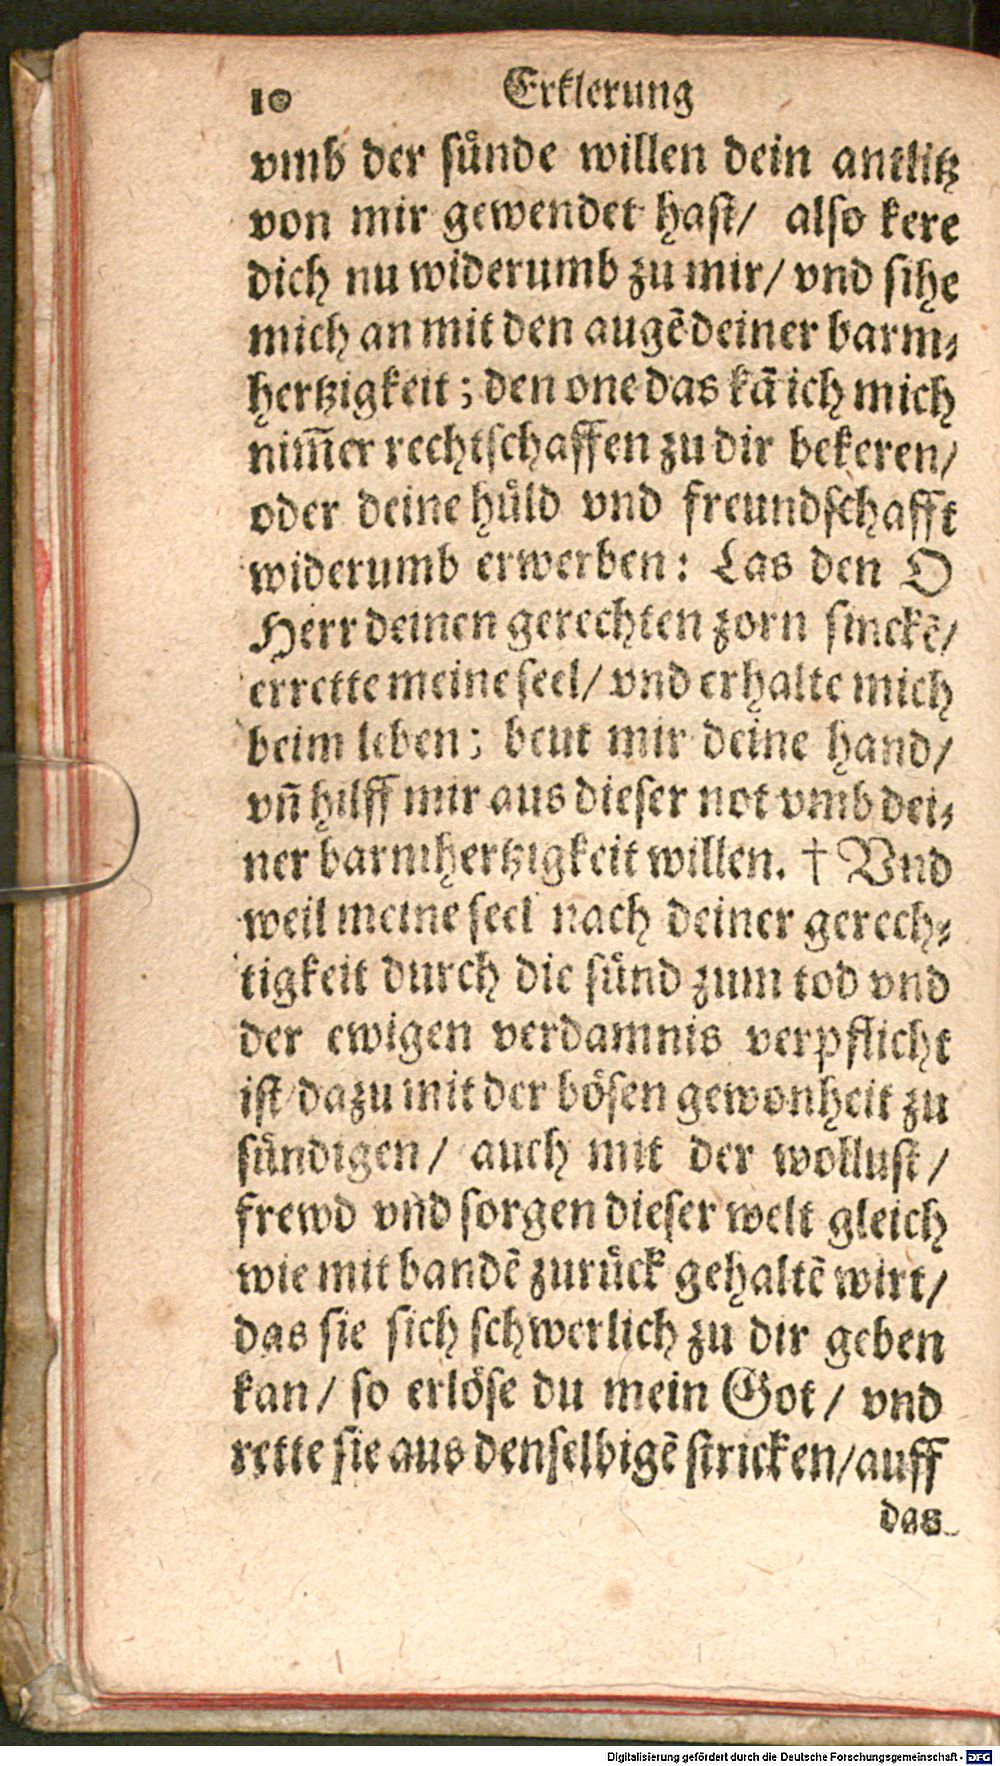 10 Erklerung
vmb der sünde willen dein antlitz
von mir gewendet hast/ also kere
dich nu widerumb zu mir/ vnd sihe
mich an mit den augẽ deiner barm⸗
hertzigkeit; den one das kã ich mich
nim̃er rechtschaffen zu dir bekeren/
oder deine hůld vnd freundschafft
widerumb erwerben: Las den O
Herr deinen gerechten zorn sinckẽ/
errette meine seel/ vnd erhalte mich
beim leben; beut mir deine hand/
vñ hilff mir aus dieser not vmb dei⸗
ner barmhertzigkeit willen. † Vnd
weil meine seel nach deiner gerech⸗
tigkeit durch die sünd zum tod vnd
der ewigen verdamnis verpflicht
ist/ dazu mit der bösen gewonheit zu
sündigen/ auch mit der wollust/
frewd vnd sorgen dieser welt gleich
wie mit bandẽ zurück gehaltẽ wirt/
das sie sich schwerlich zu dir geben
kan/ so erlöse du mein Got/ vnd
rette sie aus denselbigẽ stricken/ auff
das
Digitalisierung gefördert durch die Deutsche Forschungsgemeinschaft - DFG